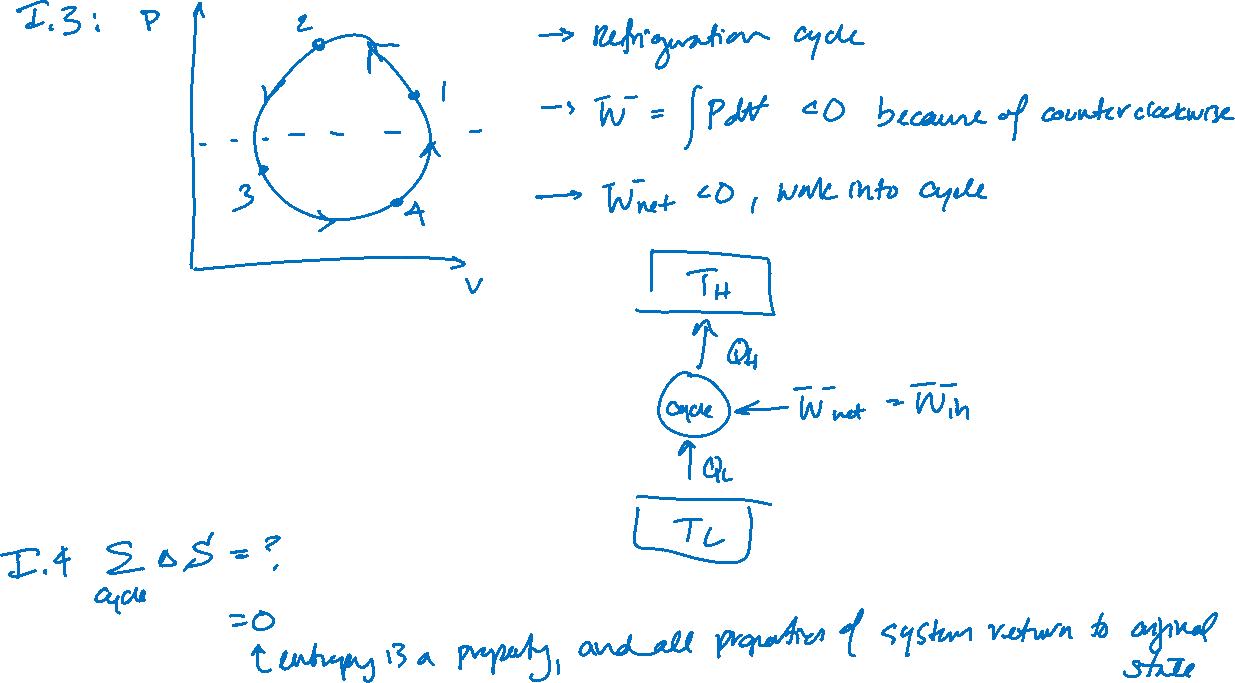 I.3:
P
2
1
3
4
V
→ Refrigeration cycle
→ W = ∫PdV <0 because of counterclockwise
→ Wnet <0, work into cycle
TH
QH
cycle ← Wnet = Win
QL
TL
I.4 Σ ΔS = ?
cycle
=0
↑ entropy is a property, and all properties of system return to original
state